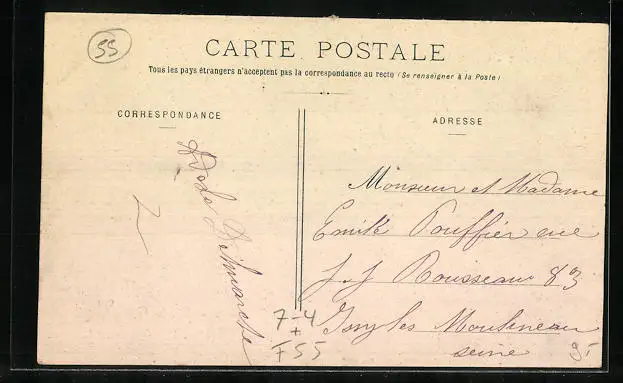 55
CARTE POSTALE
Tous les pays étrangers n'acceptent pas la correspondance au recto (Se renseigner à la Poste)
CORRESPONDANCE
ADRESSE
Monsieur et Madame
Emile Pouffier rue
J.J Rousseau 83
Issy les Moulineau
seine
7-4
+
F55